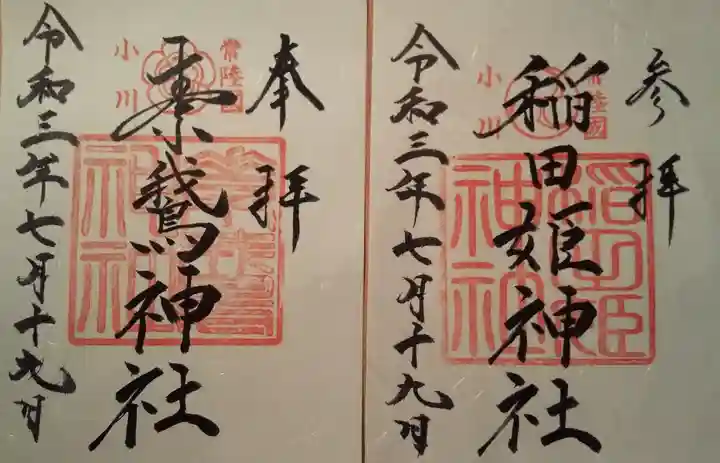 奉拝
常陸國
小川
素鵞神社
令和三年七月十九日
参拝
常陸國
小川
稲田姫神社
令和三年七月十九日
稲田姫神社